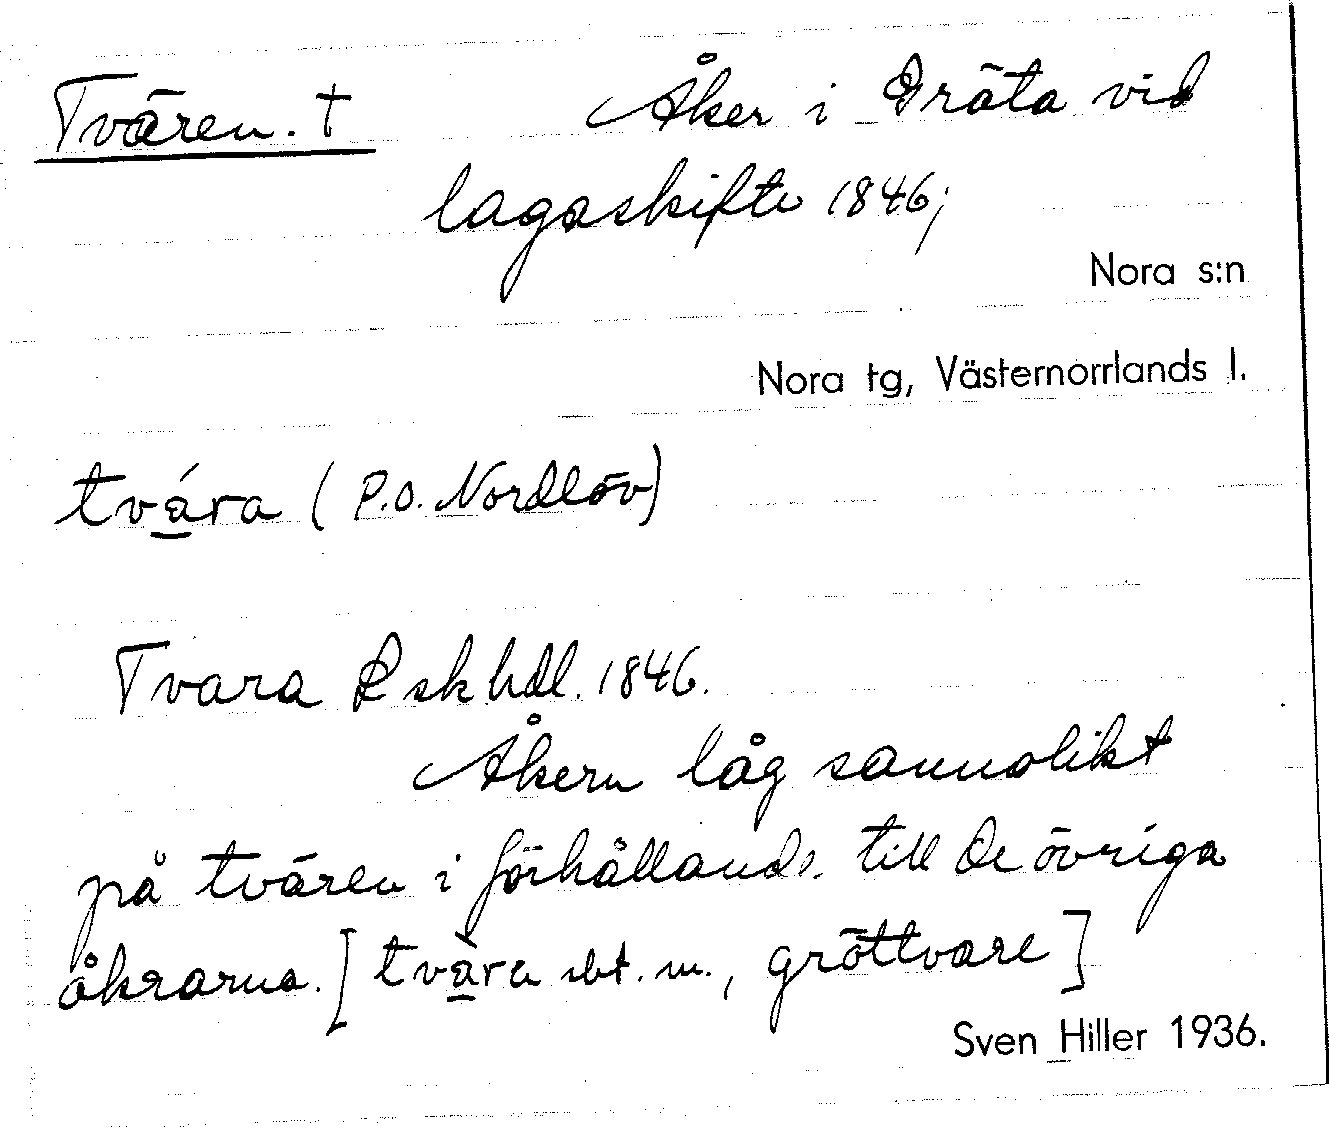 Tvären. † Åker i Gräta vid
lagaskifte 1846;
Nora s:n
Nora tg, Västernorrlands l.
tvá̱ra (P.O. Nordlöv)
Tvara Lskhdl. 1846.
Åkern låg sannolikt
på tvären i förhållande till de övriga
åkrarna. [tvà̱ra sbt. m., gröttvare]
Sven Hiller 1936.